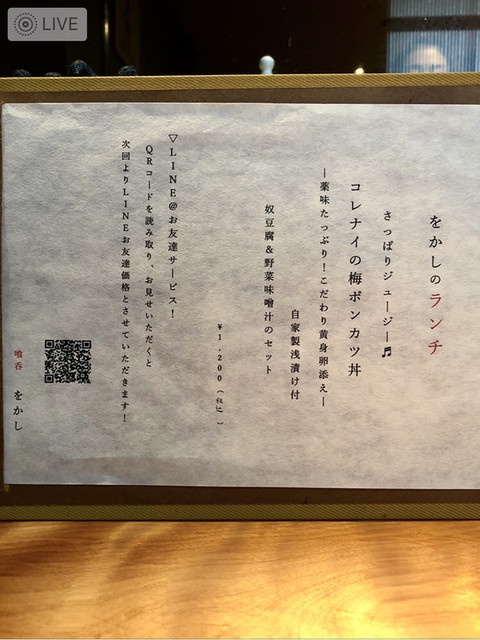 LIVE
をかしのランチ
さっぱりジューシー♬
コレナイの梅ポンカツ丼
―薬味たっぷり！こだわり黄身卵添え―
自家製浅漬け付
奴豆腐＆野菜味噌汁のセット
¥1,200（税込）
▽LINE@お友達サービス！
QRコードを読み取り、お見せいただくと
次回よりLINEお友達価格とさせていただきます！
喰呑 をかし